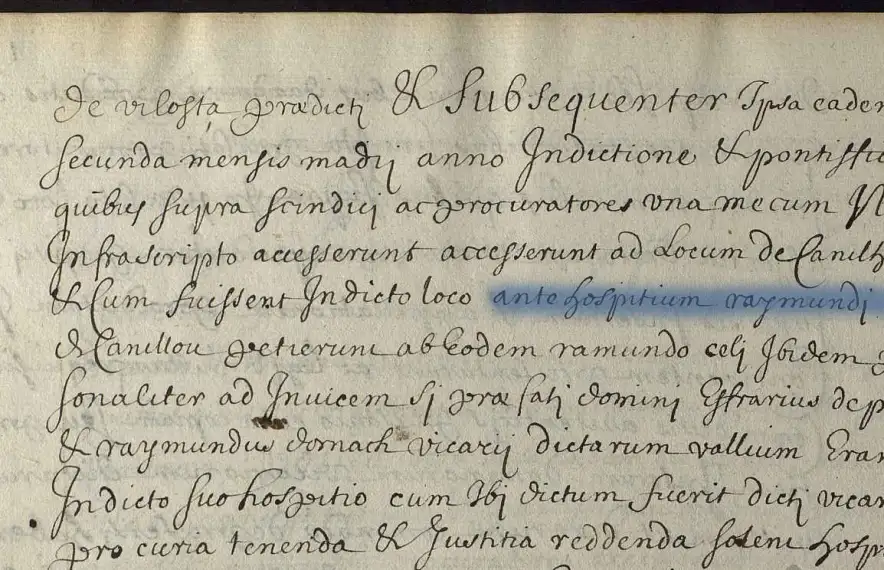 de vilosta prædictj & Subsequenter Ipsa eadem
secunda mensis madij anno Indictione & pontiffic
quibus supra scindicj ac procuratores vna mecum
Infrascripto accesserunt accesserunt ad Locum de Canilh
& Cum fuissent Indicto loco ante hospitium raymundj
de Canillou petierunt ab Eodem ramundo celj Ibidem
sonaliter ad Invicem sj præfatj dominj Esfrarius de p
& raymundus domach vicarij dictarum vallium Eran
Indicto suo hospitio cum Ibj dictum fuerit dictj vicar
pro curia tenenda & Justitia reddenda solent hosp